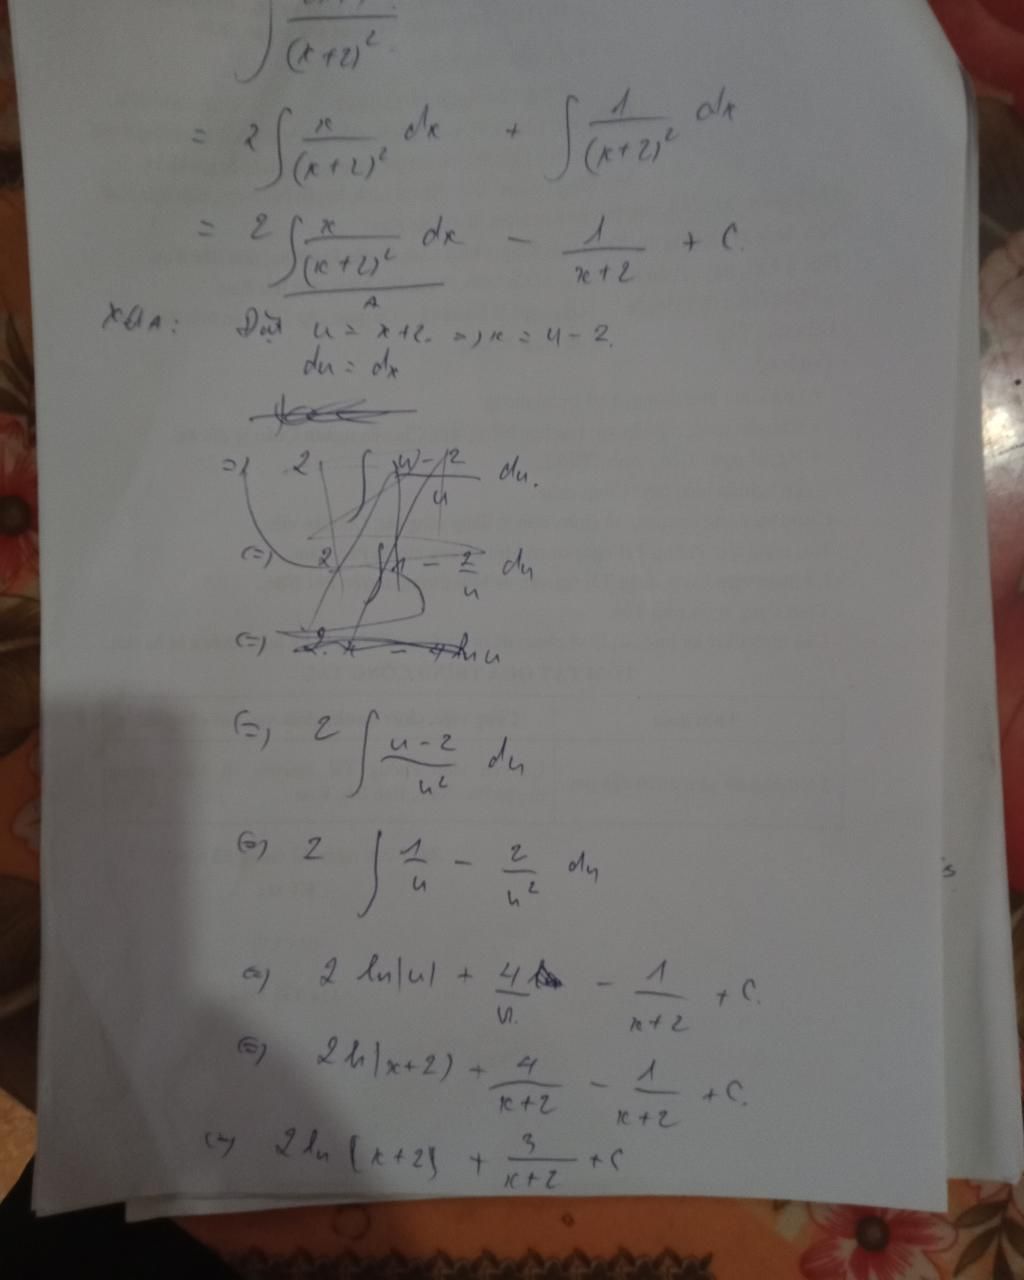 ∫ /(x+2)²
= 2 ∫ x/(x+2)² dx + ∫ 1/(x+2)² dx
= 2 ∫ x/(x+2)² dx - 1/(x+2) + C.
A
Xét A: Đặt u = x+2. => x = u - 2.
du = dx
=> 2 ∫ (u-2)/u du.
(=) 2 ∫ 1 - 2/u du
(=) 2. x - 4 ln u
(=) 2 ∫ (u-2)/u² du
(=) 2 ∫ 1/u - 2/u² du
(=) 2 ln|u| + 4/u. - 1/(x+2) + C.
(=) 2 ln|x+2) + 4/(x+2) - 1/(x+2) + C.
(=) 2 ln |x+2| + 3/(x+2) + C